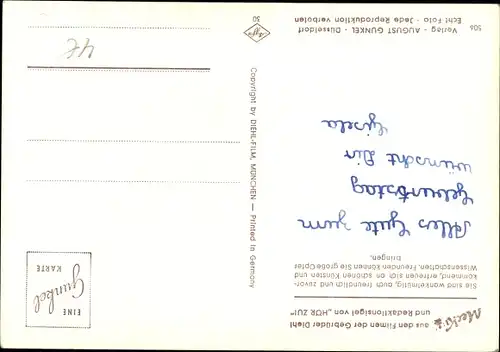 Mecki aus den Filmen der Gebrüder Diehl
und Redaktionsigel von „HÖR ZU!"
Sie sind wankelmütig, auch freundlich und zuvor-
kommend, erfreuen sich an schönen Künsten und
Wissenschaften. Freunden können Sie große Opfer
bringen.
Alles Gute zum
Geburtstag
wünscht Dir
Gisela
EINE
Gunkel
KARTE
Copyright by DIEHL-FILM, MÜNCHEN — Printed in Germany
50
Agfa
506 Verlag - AUGUST GUNKEL - Düsseldorf
Echt Foto - Jede Reproduktion verboten